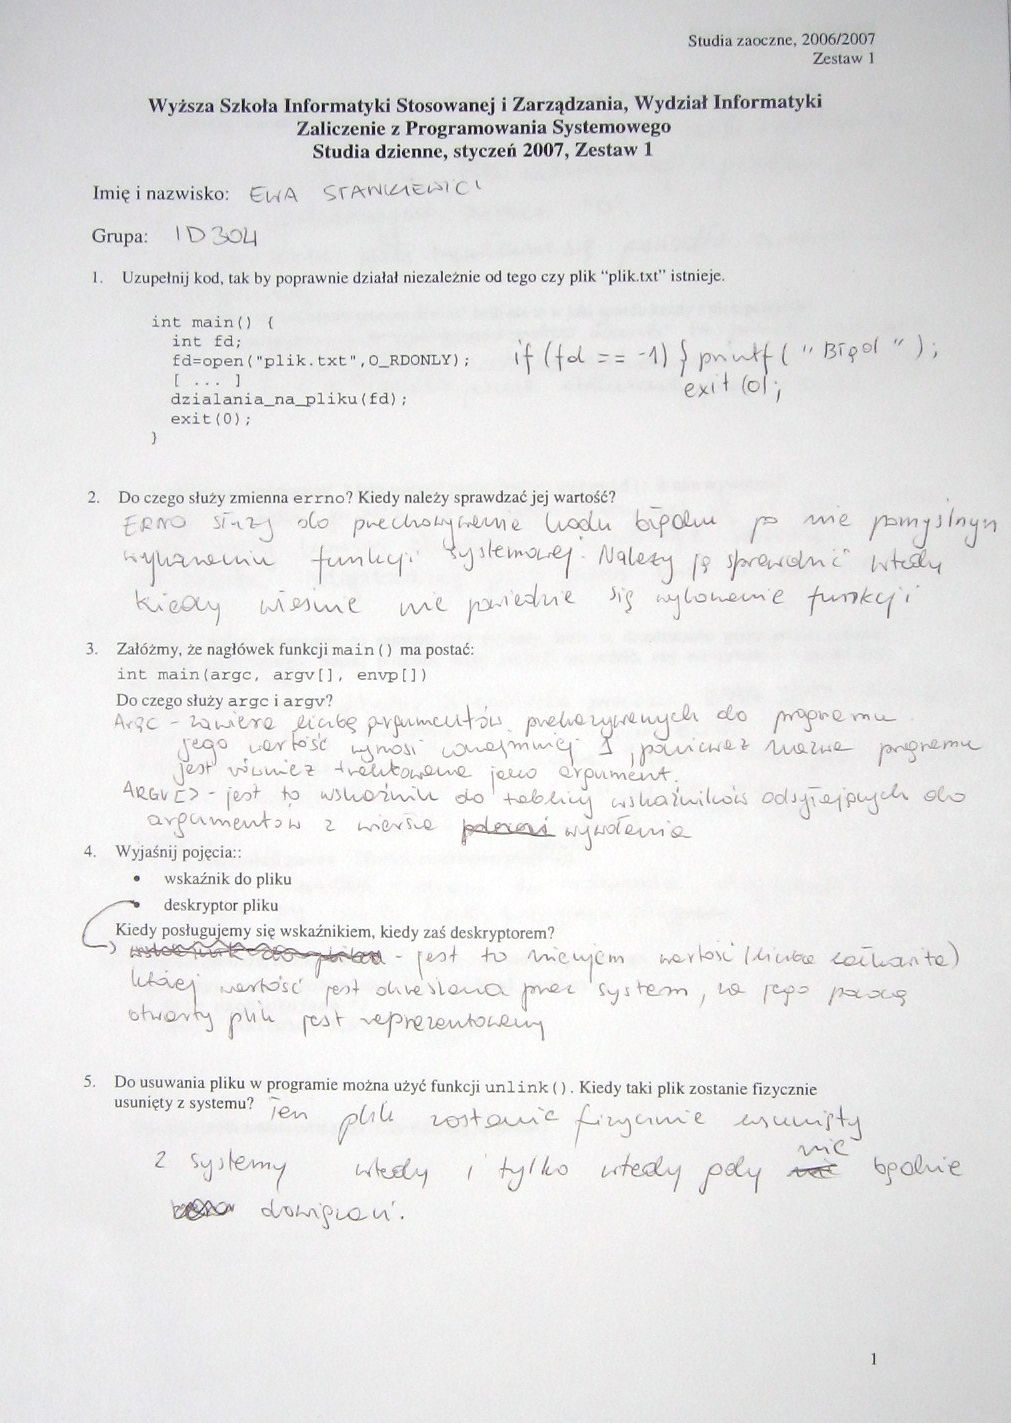 Studia zaoczne, 2006/2007
Zestaw 1
Wyższa Szkoła Informatyki Stosowanej i Zarządzania, Wydział Informatyki
Zaliczenie z Programowania Systemowego
Studia dzienne, styczeń 2007, Zestaw 1
Imię i nazwisko: EWA STANKIEWICZ
Grupa: ID304
1. Uzupełnij kod, tak by poprawnie działał niezależnie od tego czy plik "plik.txt" istnieje.
int main() {
int fd;
fd=open("plik.txt",O_RDONLY); if (fd == -1) { printf ( " Błąd " ) ;
[ ... ] exit (0) ;
dzialania_na_pliku(fd);
exit(0);
}
2. Do czego służy zmienna errno? Kiedy należy sprawdzać jej wartość?
ERRNO służy do przechowywania kodu błędu po nie pomyślnym
wykonaniu funkcji systemowej. Należy ją sprawdzić wtedy
kiedy właśnie nie powiedzie się wykonanie funkcji
3. Załóżmy, że nagłówek funkcji main() ma postać:
int main(argc, argv[], envp[])
Do czego służy argc i argv?
ARGC - zawiera liczbę argumentów przekazywanych do programu
jego wartość wynosi conajmniej 1, ponieważ nazwa programu
jest również traktowana jako argument.
ARGV[] - jest to wskaźnik do tablicy wskaźników odsyłających do
argumentów z wiersza wywołania
4. Wyjaśnij pojęcia::
• wskaźnik do pliku
• deskryptor pliku
Kiedy posługujemy się wskaźnikiem, kiedy zaś deskryptorem?
- jest to nieujem wartość (liczba całkowita)
której wartość jest określana przez system, za jego pomocą
otwarty plik jest reprezentowany
5. Do usuwania pliku w programie można użyć funkcji unlink(). Kiedy taki plik zostanie fizycznie
usunięty z systemu? Ten plik zostanie fizycznie usunięty
z systemu wtedy i tylko wtedy gdy nie będzie
dowiązań.
1